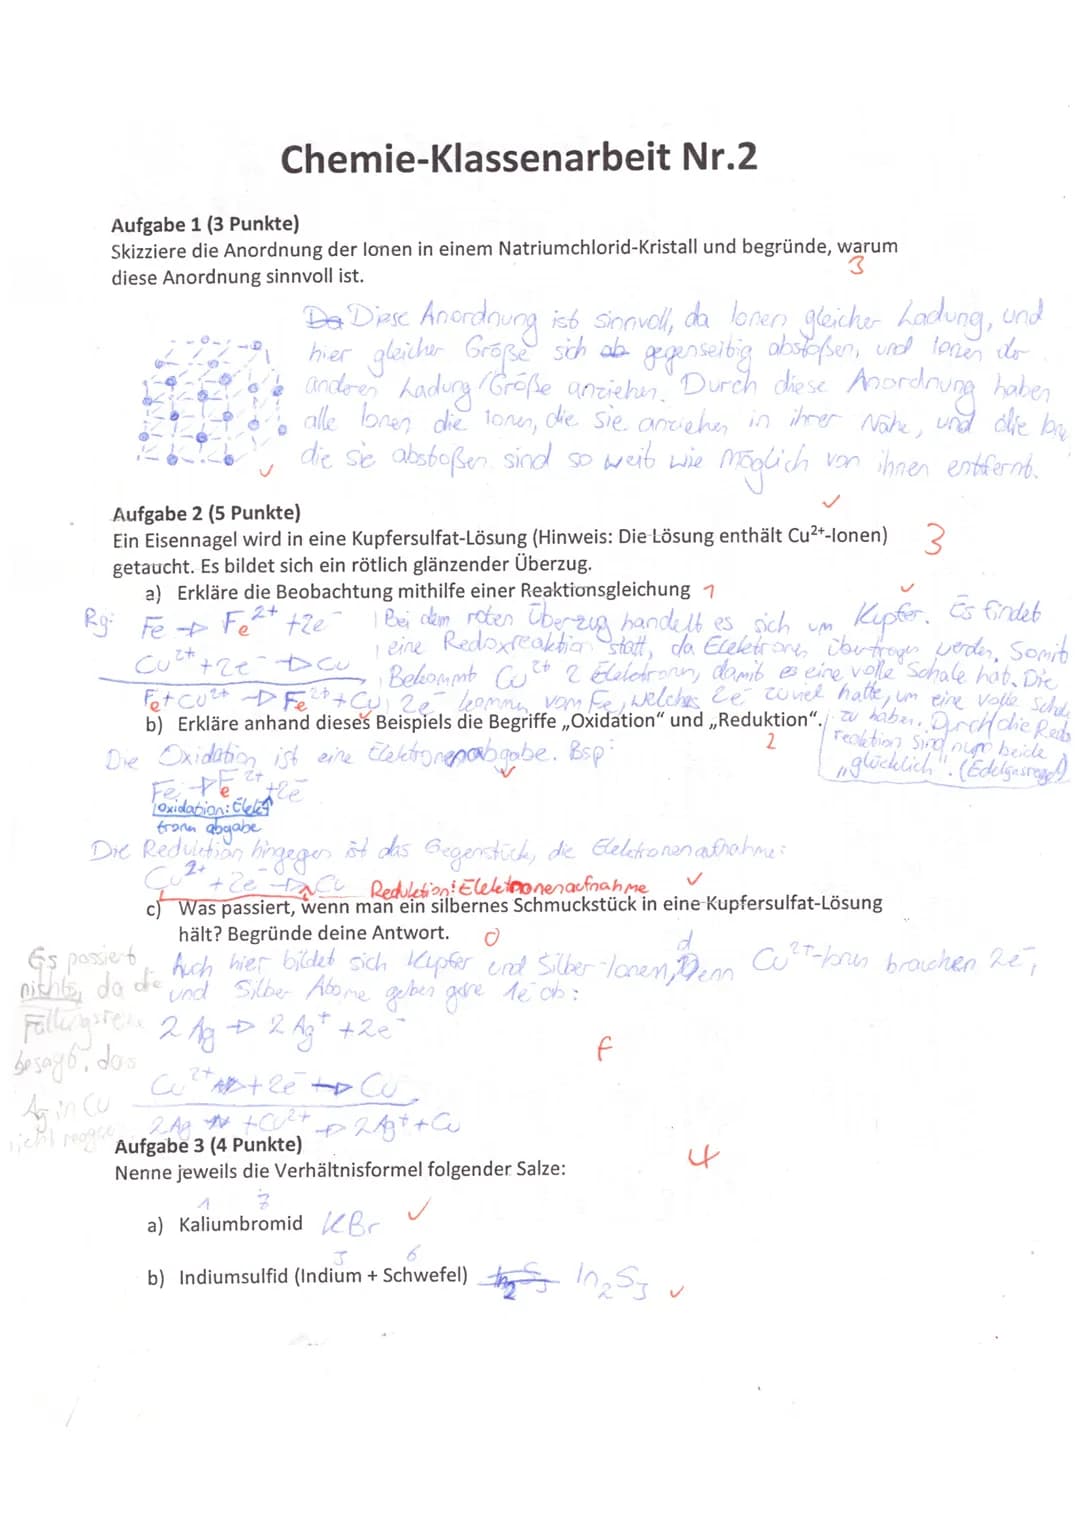 Chemie-Klassenarbeit Nr.2
Aufgabe 1 (3 Punkte)
Skizziere die Anordnung der Ionen in einem Natriumchlorid-Kristall und begründe, warum
diese Anordnung sinnvoll ist.
3
Da Diese Anordnung ist sinnvoll, da Ionen gleicher Ladung, und
hier gleicher Größe sich ab gegenseitig abstoßen, und Ionen der
anderen Ladung/Größe anziehen. Durch diese Anordnung haben
alle Ionen die Ionen, die sie anziehen in ihrer Nähe, und die
die sie abstoßen sind so weit wie möglich von ihnen entfernt.
Aufgabe 2 (5 Punkte)
Ein Eisennagel wird in eine Kupfersulfat-Lösung (Hinweis: Die Lösung enthält Cu²⁺-Ionen)
3
getaucht. Es bildet sich ein rötlich glänzender Überzug.
a) Erkläre die Beobachtung mithilfe einer Reaktionsgleichung 1
Rg: Fe → Fe²⁺ +2e⁻ Bei dem roten Überzug handelt es sich um Kupfer. Es findet
eine Redoxreaktion statt, da Elektronen übertragen werden. Somit
Cu²⁺+2e⁻ → Cu Bekommt Cu²⁺ 2 Elektronen, damit es eine volle Schale hat. Die
Fe+Cu²⁺ → Fe²⁺+Cu 2e⁻ kommen vom Fe, welches 2e⁻ zuviel hatte, um eine volle Schale
b) Erkläre anhand dieses Beispiels die Begriffe „Oxidation“ und „Reduktion“. zu haben. Durch die Redox
reaktion sind nun beide
„glücklich“. (Edelgasregel)
2
Die Oxidation ist eine Elektronenabgabe. Bsp:
Fe → Fe²⁺ +2e⁻
Oxidation: Elek
tronen abgabe
Die Reduktion hingegen ist das Gegenstück, die Elektronenaufnahme:
Cu²⁺ +2e⁻ → Cu Reduktion: Elektronenaufnahme
c) Was passiert, wenn man ein silbernes Schmuckstück in eine Kupfersulfat-Lösung
hält? Begründe deine Antwort. 0
Auch hier bildet sich Kupfer und Silber-Ionen, denn Cu²⁺-Ionen brauchen 2e⁻,
und Silber Atome geben gerne 1e⁻ ab:
2 Ag → 2 Ag⁺ +2e⁻
f
Cu²⁺ +2e⁻ → Cu
2Ag +Cu²⁺ → 2Ag⁺+Cu
Es passiert
nichts, da die
Fällungsreihe
besagt, das
Ag in Cu
nicht
Aufgabe 3 (4 Punkte)
4
Nenne jeweils die Verhältnisformel folgender Salze:
a) Kaliumbromid KBr
b) Indiumsulfid (Indium + Schwefel) In₂S₃